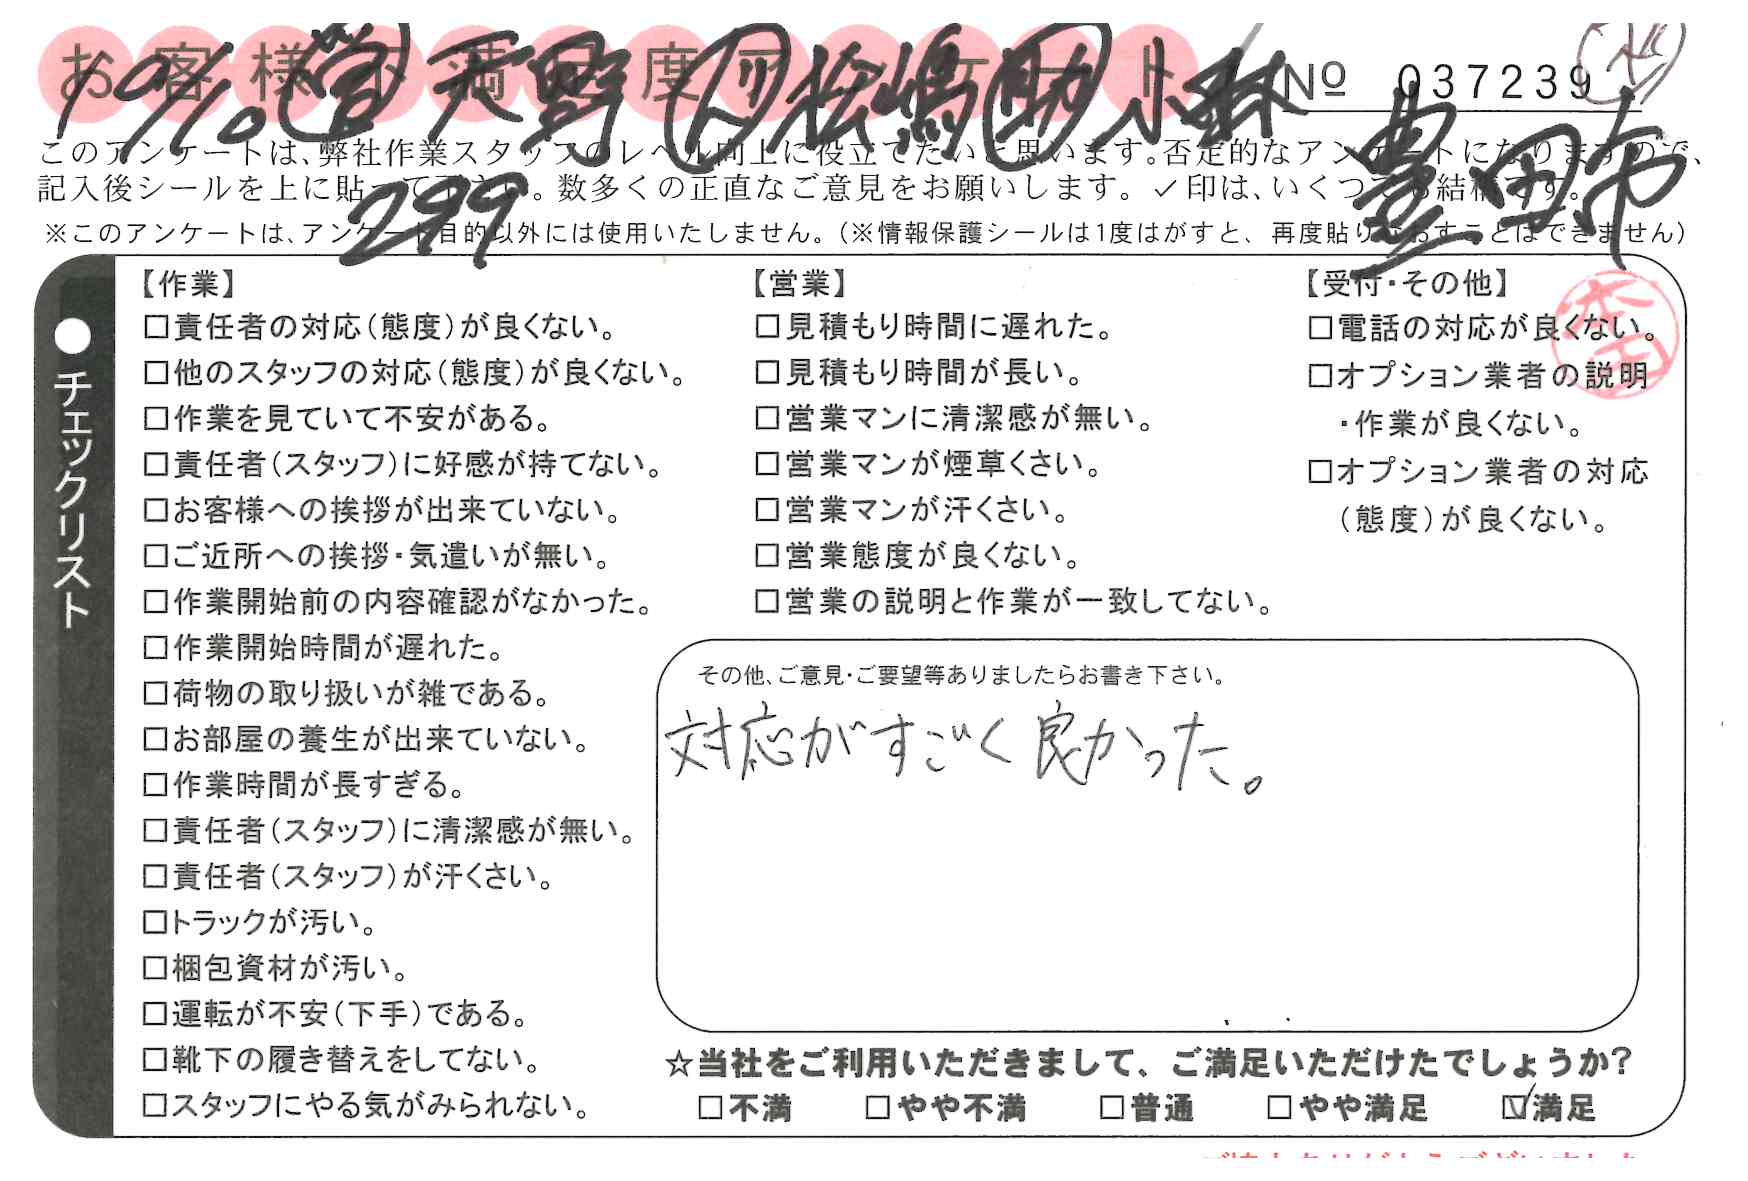 お客様不満足度アンケート
1 9/10 (営) 天野 (リ) 松嶋 (助) 小林
№ 037239
このアンケートは、弊社作業スタッフのレベル向上に役立てたいと思います。否定的なアンケートになりますので、
記入後シールを上に貼って下さい。数多くの正直なご意見をお願いします。✓印は、いくつでも結構です。
299
豊田市
※このアンケートは、アンケート目的以外には使用いたしません。(※情報保護シールは1度はがすと、再度貼りなおすことはできません)
●チェックリスト
【作業】
□責任者の対応(態度)が良くない。
□他のスタッフの対応(態度)が良くない。
□作業を見ていて不安がある。
□責任者(スタッフ)に好感が持てない。
□お客様への挨拶が出来ていない。
□ご近所への挨拶・気遣いが無い。
□作業開始前の内容確認がなかった。
□作業開始時間が遅れた。
□荷物の取り扱いが雑である。
□お部屋の養生が出来ていない。
□作業時間が長すぎる。
□責任者(スタッフ)に清潔感が無い。
□責任者(スタッフ)が汗くさい。
□トラックが汚い。
□梱包資材が汚い。
□運転が不安(下手)である。
□靴下の履き替えをしてない。
□スタッフにやる気がみられない。
【営業】
□見積もり時間に遅れた。
□見積もり時間が長い。
□営業マンに清潔感が無い。
□営業マンが煙草くさい。
□営業マンが汗くさい。
□営業態度が良くない。
□営業の説明と作業が一致してない。
【受付・その他】
□電話の対応が良くない。
□オプション業者の説明
・作業が良くない。
□オプション業者の対応
(態度)が良くない。
本田
その他、ご意見・ご要望等ありましたらお書き下さい。
対応がすごく良かった。
☆当社をご利用いただきまして、ご満足いただけたでしょうか?
□不満 □やや不満 □普通 □やや満足 ☑満足